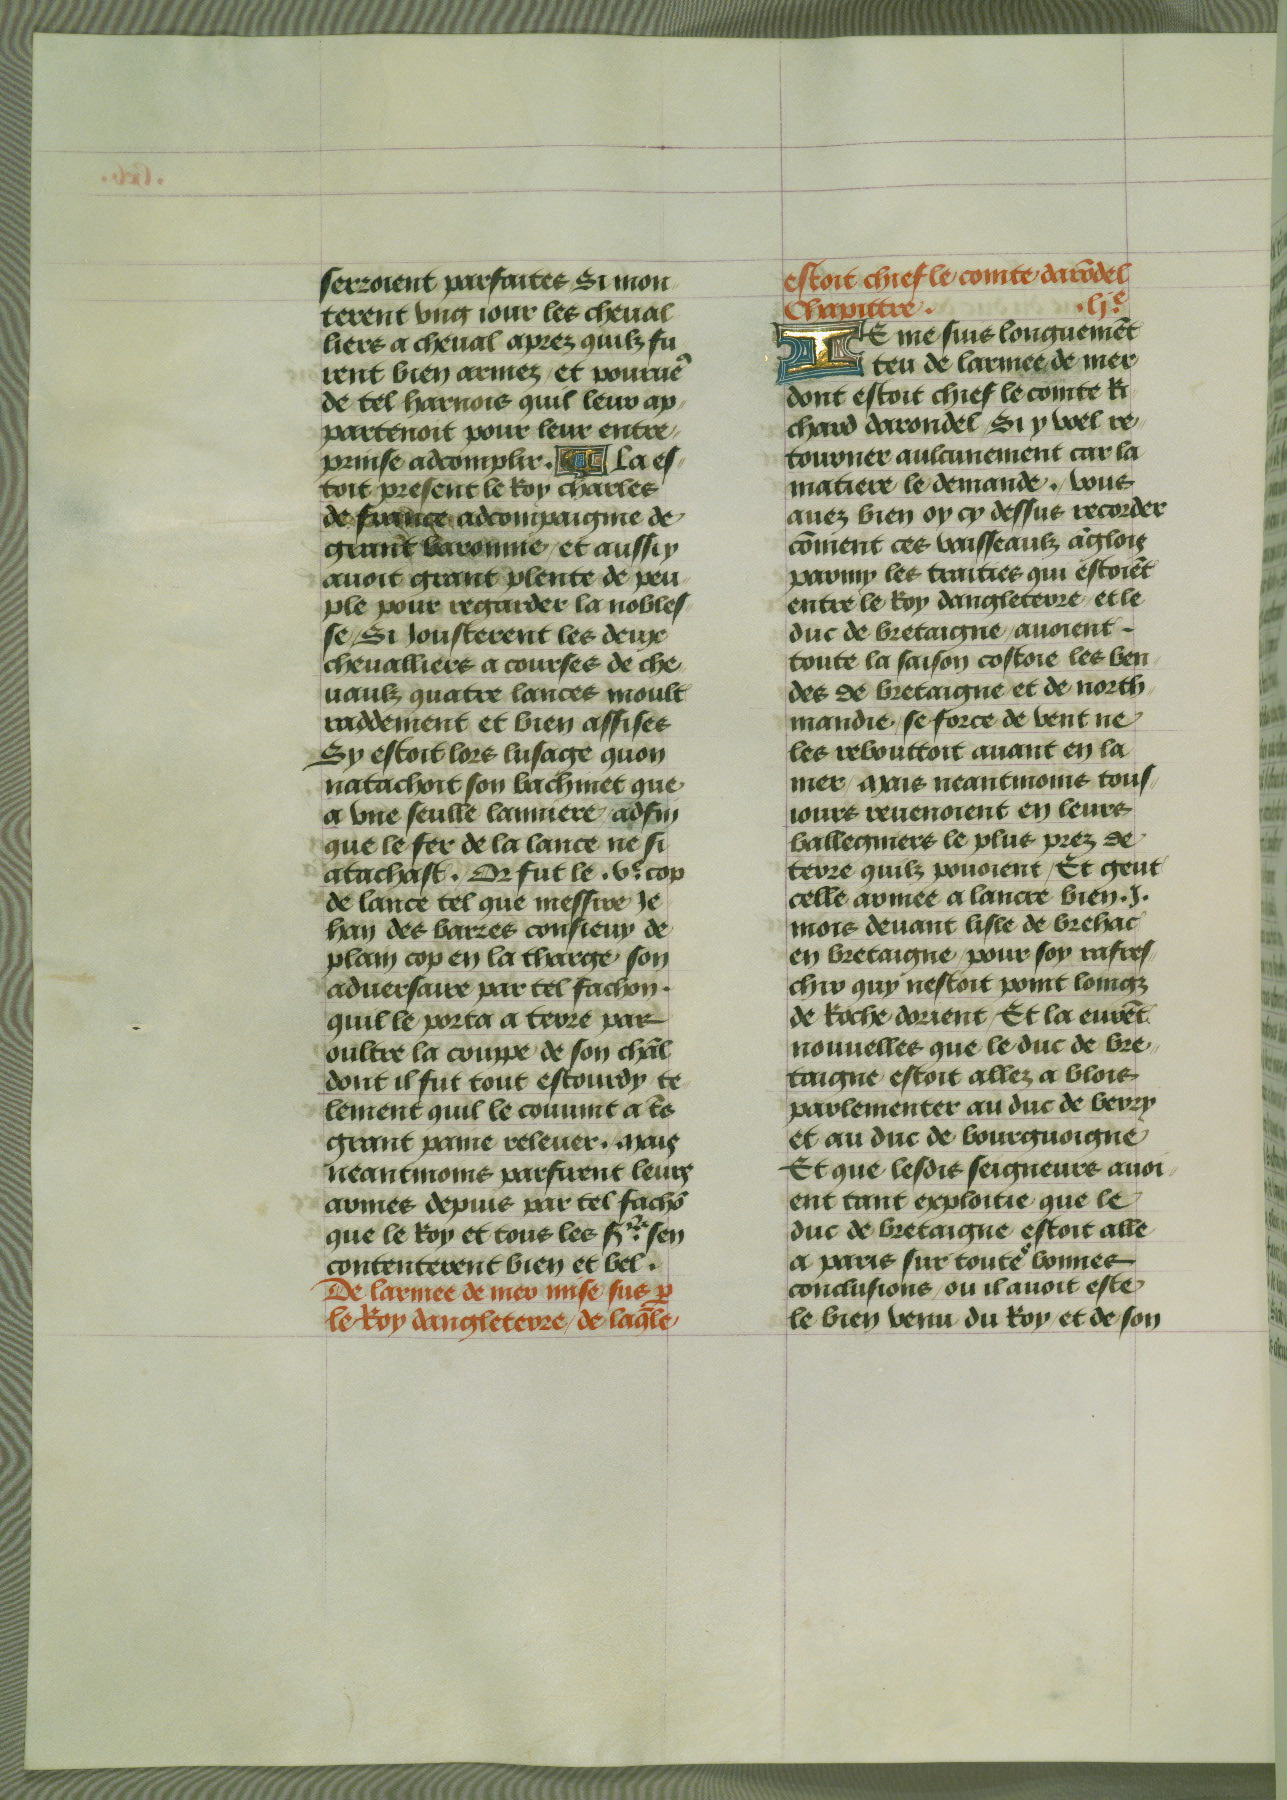 serroient parfaites Si mon
terent vng iour les cheual
liers a cheual aprez quilz fu
rent bien armez et pourueu
de tel harnois quil leur ap
partenoit pour leur entre
prinse adcomplir. La es
toit present le Roy charles
de france adcompaignie de
grant baronnie et aussy
auoit grant plente de peu
ple pour regarder la nobles
se Si Jousterent les deux
cheualliers a courses de che
uaulz quatre lances moult
raddement et bien assises
Sy estoit lors lusage quon
natachoit son bachinet que
a vne seulle lanniere adfin
que le fer de la lance ne si
atachast. Or fut le .ve. cop
de lance tel que messire Je
han des barres consieuy de
plain cop en la tharge son
aduersaire par tel fachon.
quil le porta a terre par
oultre la couppe de son chal
dont il fut tout estourdy te
lement quil le couuint a tes
grant paine releuer. Mais
neantmoins parfirent leurs
armes depuis par tel fachō
que le Roy et tous les srs sen
contenterent bien et bel.
De larmee de mer mise sus p̄
le Roy dangleterre de laq̄le
estoit chief le comte darōdel
Chapittre. .lje.
IE me suis longuemēt
teu de larmee de mer
dont estoit chief le comte Ri
chard darondel Si y voel re
tourner aulcunement car la
matiere le demande. vous
auez bien oy cy dessus recorder
cōment ces vaisseaulz āglois
parmy les traities qui estoiēt
entre le Roy dangleterre et le
duc de bretaigne auoient
toute la saison costoie les ben
des de bretaigne et de north
mandie se force de vent ne
les rebouttoit auant en la
mer Mais neantmoins tous
iours reuenoient en leurs
ballegniers le plus prez de
terre quilz pouoient Et geut
celle armee a lancre bien .J.
mois deuant lisle de brehac
en bretaigne pour soy rafres
chir quy nestoit point loingz
de Roche dorient Et la eurēt
nouuelles que le duc de bre
taigne estoit allez a blois
parlementer au duc de berry
et au duc de bourguoigne
Et que lesdis seigneurs auoi
ent tant exploitie que le
duc de bretaigne estoit alle
a paris sur toutes bonnes
conclusions ou il auoit este
le bien venu du Roy et de son